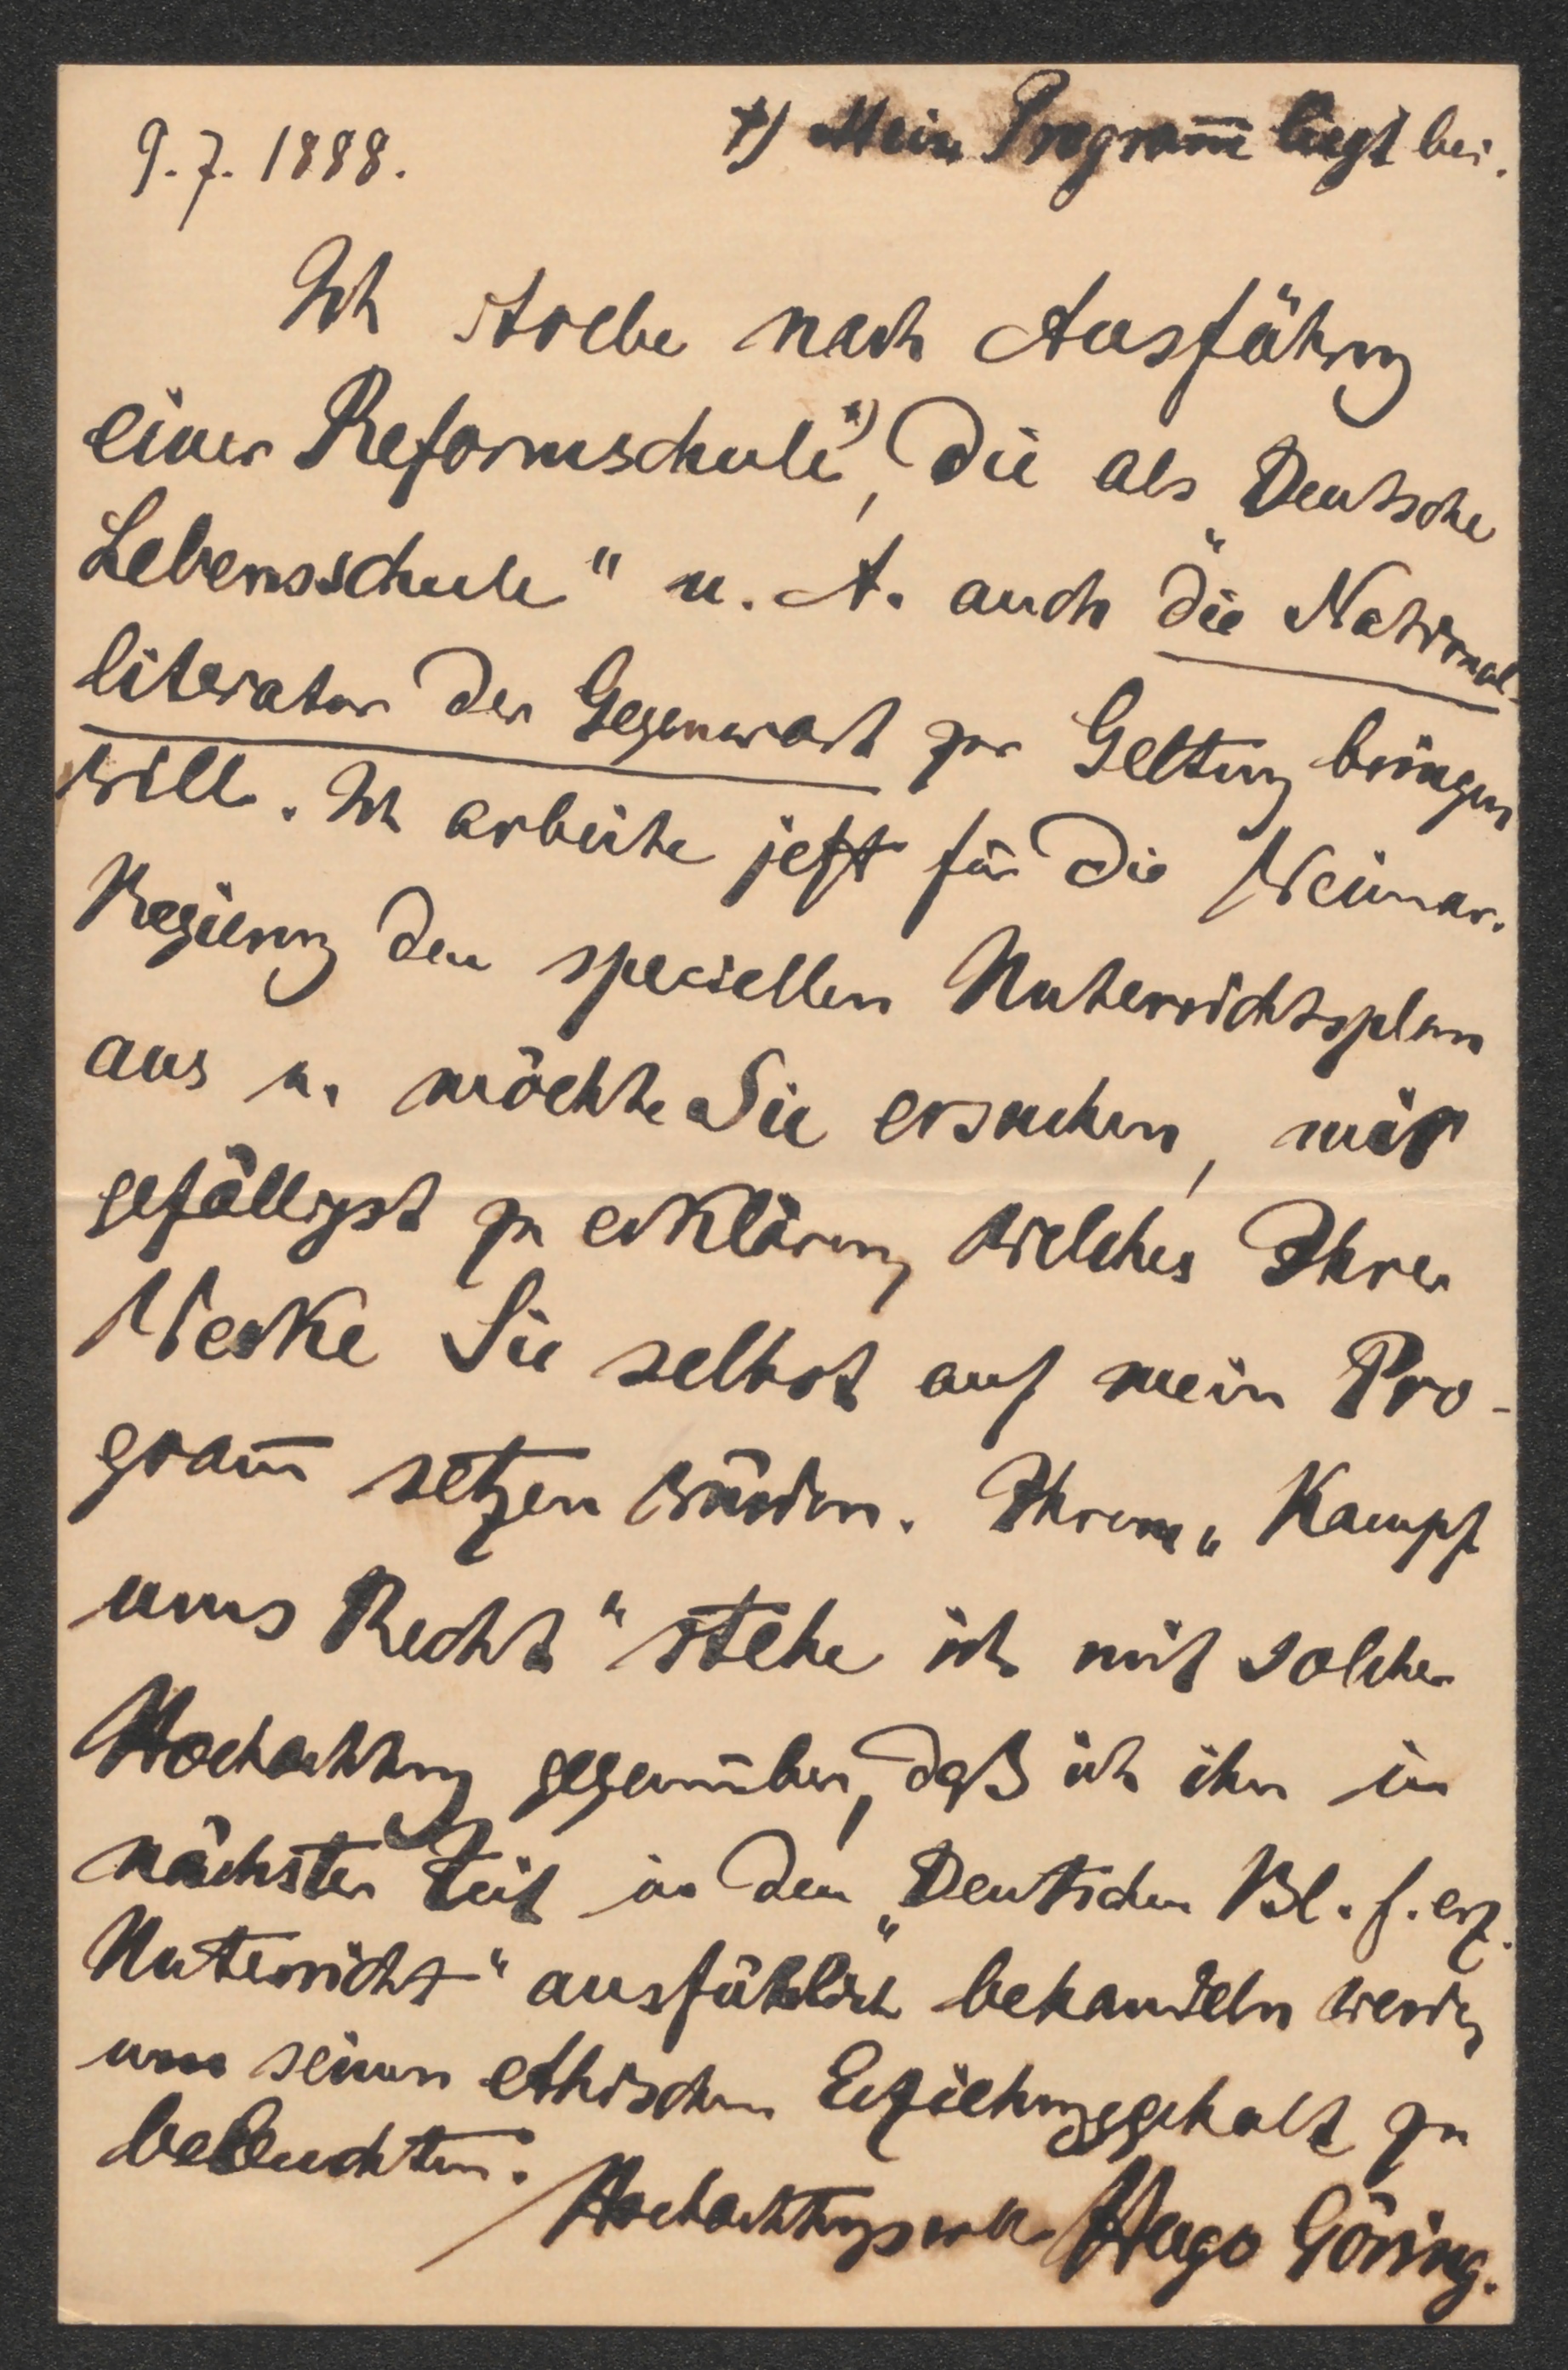 9.7.1888.
*) Mein Programm̅ liegt bei.
Ich strebe nach Ausführng
einer Reformschule*), die als „Deutsche
Lebensschule" u. A. auch die National-
literatur der Gegenwart zur Geltung bringen
will. Ich arbeite jetzt für die Weimar.
Regierung den speciellen Unterrichtsplan
aus u. möchte Sie ersuchen, mir
gefälligst zu erklären, welches Ihrer
Werke Sie selbst auf mein Pro-
gram̅ setzen würden. Ihrem „Kampf
ums Recht" stehe ich mit solcher
Hochachtung gegenüber, daß ich ihn in
nächster Zeit in den „Deutschen Bl. f. erz.
Unterricht" ausführlich behandeln werde,
um seinen ethischen Erziehungsgehalt zu
beleuchten.
Hochachtungsvoll Hugo Göring.